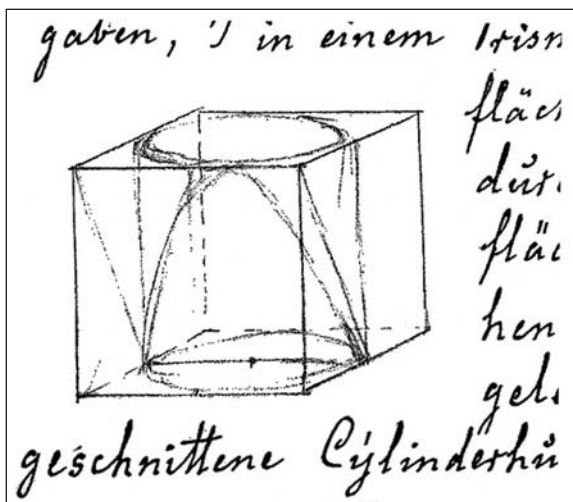 gaben, 's in einem Prism
fläch
durc
fläc
hen
gel
geschnittene Cylinderhu